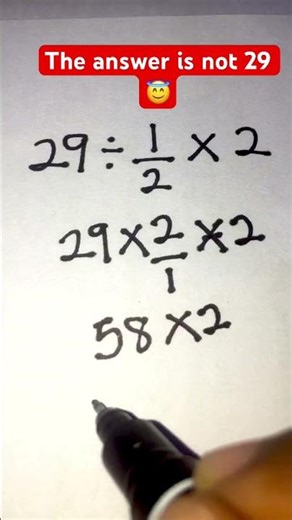 The answer is not 29
😇
29 ÷ 1/2 × 2
29 × 2/1 × 2
58 × 2